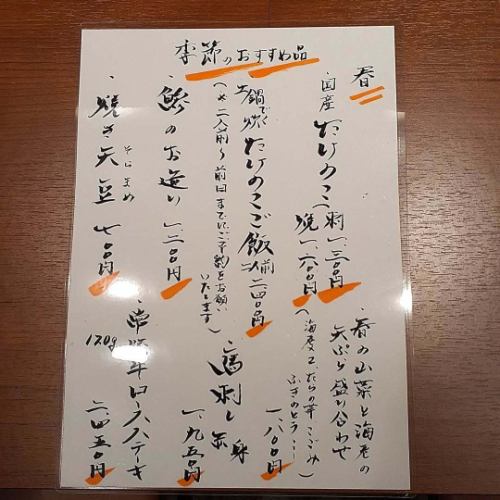 季節のおすすめ品
春
・国産たけのこ(刺 一、三〇〇円
焼 一、六〇〇円
・土鍋で炊くたけのこご飯 二人前 二、四〇〇円
(※二人前〜前日までにご予約をお願い
いたします)
・鯵のお造り 一、二〇〇円
・焼き天豆 七〇〇円
そらまめ
・春の山菜と海老の
天ぷら盛り合わせ
(海老2、たらの芽、こごみ
ふきのとう…)
一、八〇〇円
・馬刺し 赤身
一、九五〇円
牛ロースステキ
120g
二、四五〇円